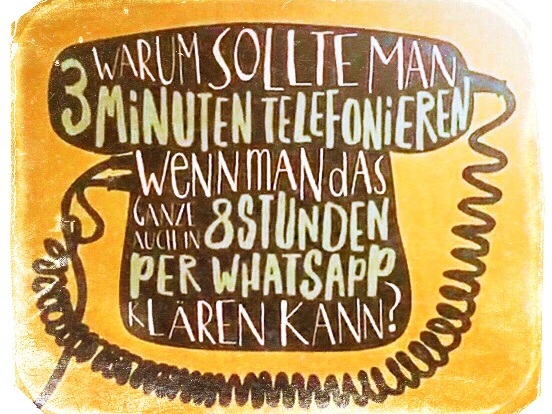 WARUM SOLLTE MAN
3 MiNUTEN TELEFONiEREN
WENN MAN dAS
GANZE
AUCH IN 8 STUNDEN
PER WHATSAPP
KLÄREN KANN?